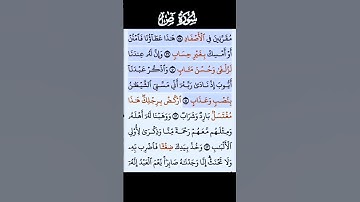 سورة ص
مُقَرَّنِينَ فِي الْأَصْفَادِ ۝ هَٰذَا عَطَاؤُنَا فَامْنُنْ
أَوْ أَمْسِكْ بِغَيْرِ حِسَابٍ ۝ وَإِنَّ لَهُ عِندَنَا
لَزُلْفَىٰ وَحُسْنَ مَـَٔابٍ ۝ وَاذْكُرْ عَبْدَنَا
أَيُّوبَ إِذْ نَادَىٰ رَبَّهُ أَنِّي مَسَّنِيَ الشَّيْطَٰنُ
بِنُصْبٍ وَعَذَابٍ ۝ ارْكُضْ بِرِجْلِكَ هَٰذَا
مُغْتَسَلٌ بَارِدٌ وَشَرَابٌ ۝ وَوَهَبْنَا لَهُ أَهْلَهُ
وَمِثْلَهُم مَّعَهُمْ رَحْمَةً مِّنَّا وَذِكْرَىٰ لِأُولِي
الْأَلْبَٰبِ ۝ وَخُذْ بِيَدِكَ ضِغْثًا فَاضْرِب بِّهِ
وَلَا تَحْنَثْ إِنَّا وَجَدْنَٰهُ صَابِرًا نِّعْمَ الْعَبْدُ إِنَّهُ